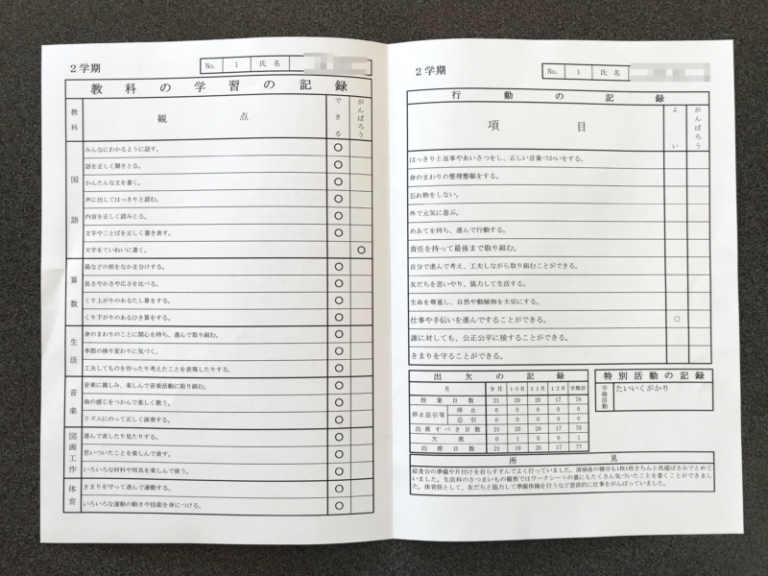 2学期
No. 1 氏名
教科の学習の記録
教科 観点 できる がんばろう
国語
みんなにわかるように話す。 ○
話を正しく聞きとる。 ○
かんたんな文を書く。 ○
声に出してはっきりと読む。 ○
内容を正しく読みとる。 ○
文字やことばを正しく書き表す。 ○
文字をていねいに書く。 ○
算数
箱などの形をなかま分けする。 ○
長さやかさや広さを比べる。 ○
くり上がりのあるたし算をする。 ○
くり下がりのあるひき算をする。 ○
生活
身のまわりのことに関心を持ち、進んで取り組む。 ○
季節の移り変わりに気づく。 ○
工夫してものを作ったり考えたことを表現したりする。 ○
音楽
音楽に親しみ、楽しんで音楽活動に取り組む。 ○
曲の感じをつかんで楽しく歌う。 ○
リズムにのって正しく演奏する。 ○
図画工作
進んで表したり見たりする。 ○
思いついたことを楽しんで表す。 ○
いろいろな材料や用具を楽しんで使う。 ○
体育
きまりを守って進んで運動する。 ○
いろいろな運動の動きや技能を身につける。 ○
2学期
No. 1 氏名
行動の記録
項目 よい がんばろう
はっきりと返事やあいさつをし、正しい言葉づかいをする。
身のまわりの整理整頓をする。
忘れ物をしない。
外で元気に遊ぶ。
めあてを持ち、進んで行動する。
責任を持って最後まで取り組む。
自分で進んで考え、工夫しながら取り組むことができる。
友だちを思いやり、協力して生活する。
生命を尊重し、自然や動植物を大切にする。
仕事や手伝いを進んですることができる。 ○
誰に対しても、公正公平に接することができる。
きまりを守ることができる。
出欠の記録
月 9月 10月 11月 12月 学期計
授業日数 21 20 20 17 78
停止忌引等 停止 0 0 0 0 0
忌引 0 0 0 0 0
出席すべき日数 21 20 20 17 78
欠席 0 1 0 0 1
出席日数 21 19 20 17 77
特別活動の記録
学級活動 たいいくがかり
所見
給食台の準備や片付けを自らすすんでよく行っていました。清掃後の雑巾も1枚1枚きちんと洗濯ばさみでとめて
いました。生活科のさつまいもの観察ではワークシートの裏にもたくさん気づいたことを書くことができまし
た。体育係として、友だちと協力して準備体操を行うなど意欲的に仕事をがんばっていました。